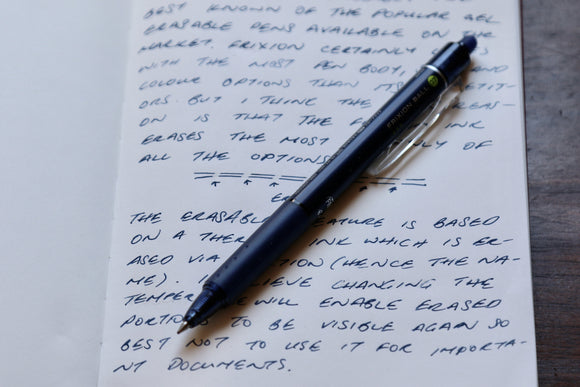 BEST KNOWN OF THE POPULAR GEL
ERASABLE PENS AVAILABLE ON THE
MARKET. FRIXION CERTAINLY
WITH THE MOST PEN BODY, AND
COLOUR OPTIONS THAN ITS
ORS. BUT I THINK THE REAS-
ON IS THAT THE INK
ERASES THE MOST OF
ALL THE OPTIONS
THE ERASABLE FEATURE IS BASED
ON A INK WHICH IS ER-
ASED VIA (HENCE THE NA-
ME). I BELIEVE CHANGING THE
WILL ENABLE ERASED
PORTIONS TO BE VISIBLE AGAIN SO
BEST NOT TO USE IT FOR IMPORTA-
NT DOCUMENTS.
FRIXION BALL